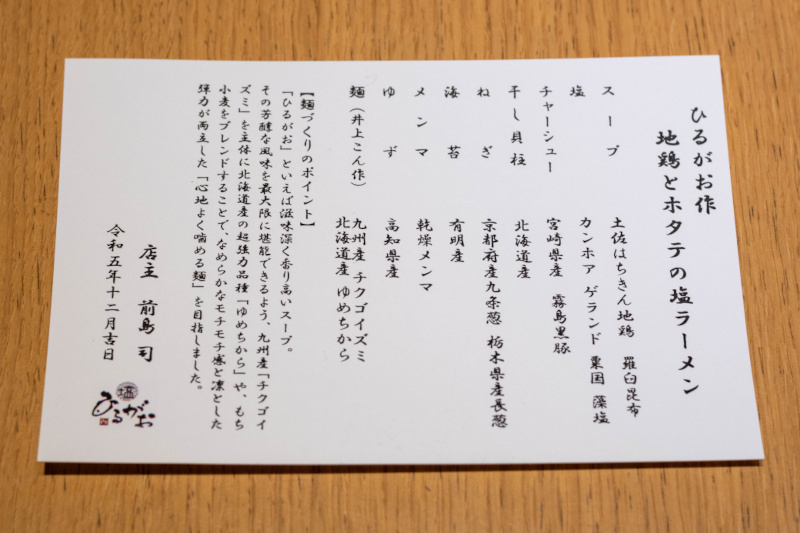 ひるがお作
地鶏とホタテの塩ラーメン
スープ 土佐はちきん地鶏 羅臼昆布
塩 カンホア ゲランド 粟国 藻塩
チャーシュー 宮崎県産 霧島黒豚
干し貝柱 北海道産
ねぎ 京都府産九条葱 栃木県産長葱
海苔 有明産
メンマ 乾燥メンマ
ゆず 高知県産
麺（井上こん作） 九州産 チクゴイズミ
北海道産 ゆめちから
【麺づくりのポイント】
「ひるがお」といえば滋味深く香り高いスープ。
その芳醇な風味を最大限に堪能できるよう、九州産「チクゴイ
ズミ」を主体に北海道産の超強力品種「ゆめちから」や、もち
小麦をブレンドすることで、なめらかなモチモチ感と凛とした
弾力が両立した「心地よく噛める麺」を目指しました。
店主 前島 司
令和五年十二月吉日
塩
ひるがお